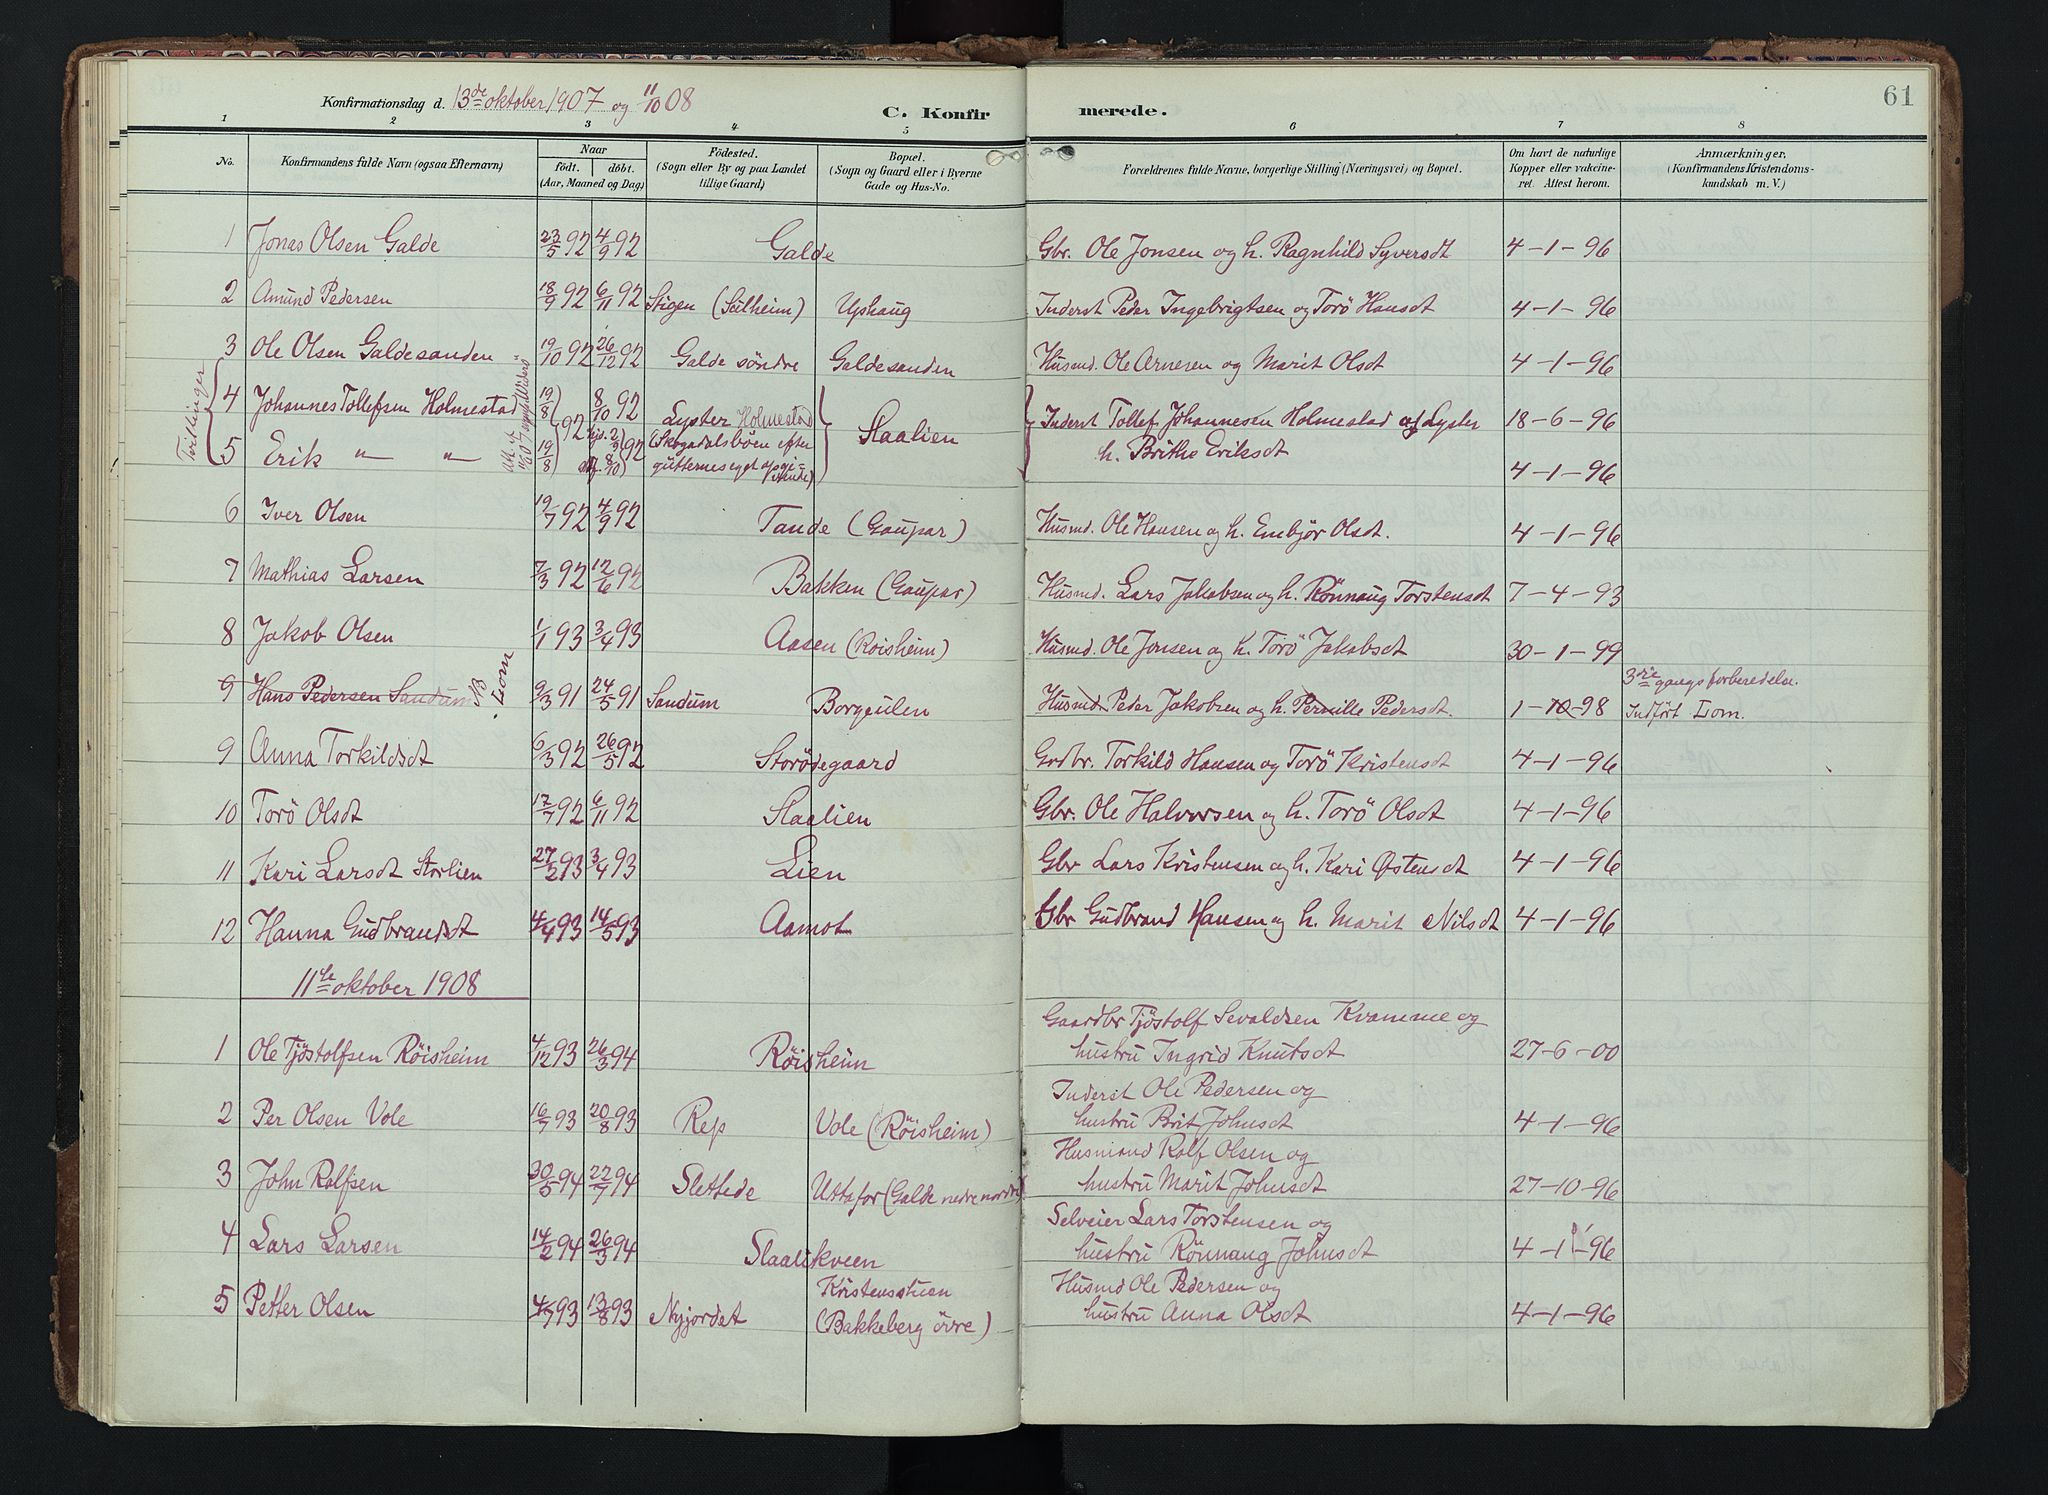 61
Konfirmationsdag d. 13de oktober 1907 og 11/10 08
C. Konfirmerede.
1 2 3 4 5 6 7 8
No. Konfirmandens fulde Navn (ogsaa Efternavn) Naar født. døbt. (Aar, Maaned og Dag) Fødested. (Sogn eller By og paa Landet tillige Gaard) Bopæl. (Sogn og Gaard eller i Byerne Gade og Hus-No. Forældrenes fulde Navne, borgerlige Stilling (Næringsvei) og Bopæl. Om havt de naturlige Kopper eller vakcineret. Attest herom. Anmærkninger. (Konfirmandens Kristendomskundskab m. V.)
1 Jonas Olsen Galde 23/5 92 4/9 92 Galde Gbr. Ole Jonsen og h. Ragnhild Syversdt 4-1-96
2 Amund Pedersen 18/9 92 6/11 92 Stigen (Sulheim) Upshaug Inderst Peder Ingebrigtsen og Torö Hansdt 4-1-96
3 Ole Olsen Galdesanden 19/10 92 26/12 92 Galde söndre Galdesanden Husmd. Ole Arnesen og Marit Olsdt 4-1-96
Tvillinger
4 Johannes Tollefsen Holmestad 19/8 92 8/10 92 Lyster Holmestad Slaalien Inderst Tollef Johannesen Holmestad af Lyster 18-6-96
5 Erik " " 19/8 92 (Skogadalsböen efter gutternes eget opgivende) h. Brithe Eriksdt 4-1-96
6 Iver Olsen 19/7 92 4/9 92 Tande (Gaupar) Husmd. Ole Hansen og h. Embjør Olsdt. 4-1-96
7 Mathias Larsen 7/3 92 12/6 92 Bakken (Gaupar) Husmd. Lars Jakobsen og h. Rönnaug Torstensdt 7-4-93
8 Jakob Olsen 1/1 93 3/4 93 Aasen (Röisheim) Husmd. Ole Jonsen og h. Torö Jakobsdt 30-1-99
9 Hans Pedersen Sandum NB Lom 9/3 91 24/5 91 Sandum Borgeulen Husmd Peder Jakobsen og h. Pernille Pedersdt. 1-10-98 3die gangs forberedelse. Indført Lom.
9 Anna Torkildsdt 6/3 92 26/5 92 Storödegaard Grdbr. Torkild Hansen og Torö Kristensdt 4-1-96
10 Torö Olsdt 17/7 92 6/11 92 Slaalien Gbr. Ole Halvorsen og h. Torö Olsdt 4-1-96
11 Kari Larsdt Storlien 27/2 93 3/4 93 Lien Gbr Lars Kristensen og h. Kari Østensdt 4-1-96
12 Hanna Gudbrandsdt 4/4 93 14/5 93 Aamot Gbr Gudbrand Hansen og h. Marit Nilsdt 4-1-96
11te oktober 1908
Gaardbr Tjöstolf Sevaldsen Kvamme og
1 Ole Tjöstolfsen Röisheim 4/12 93 26/3 94 Röisheim hustru Ingrid Knutsdt 27-6-00
Inderst Ole Pedersen og
2 Per Olsen Vole 16/7 93 20/8 93 Rep Vole (Röisheim) hustru Brit Johnsdt 4-1-96
Husmand Rolf Olsen og
3 John Rolfsen 30/5 94 22/7 94 Slettede Uttafor (Galde nedre nordre) hustru Marit Johnsdt 27-10-96
Selveier Lars Torstensen og
4 Lars Larsen 14/2 94 26/3 94 Slaalikveen hustru Rönnaug Johnsdt 4-1-96
Husmd Ole Pedersen og
5 Petter Olsen 4/7 93 13/8 93 Nyjordet Kristensstuen (Bakkeberg övre) hustru Anna Olsdt 4-1-96